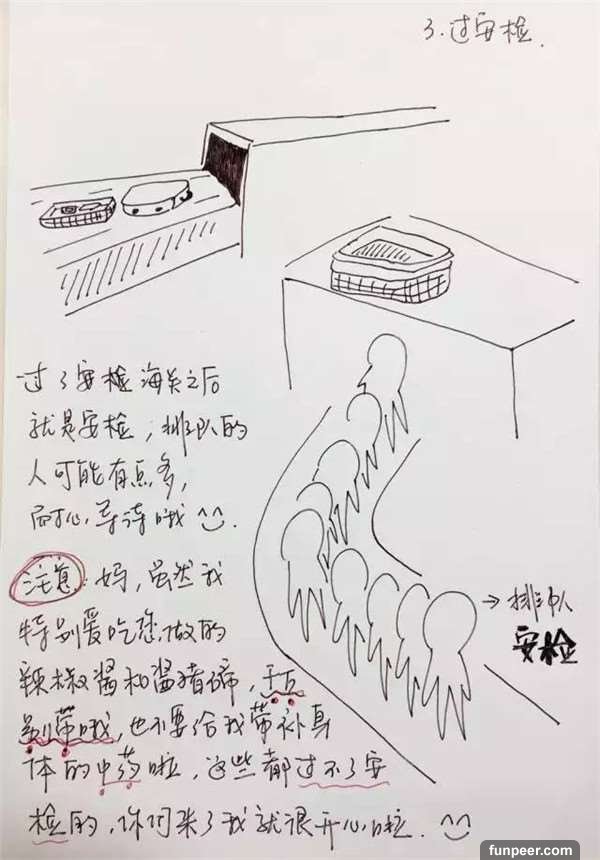 3.过安检.
过了安检海关之后
就是安检，排队的
人可能有点多，
耐心等待哦^_^.
注意:妈，虽然我
特别爱吃您做的
辣椒酱和酱猪蹄，千万
别带哦，也不要给我带补身
体的中药啦，这些都过不了安
检的，你们来了我就很开心啦.^_^
→排队
安检
funpeer.com